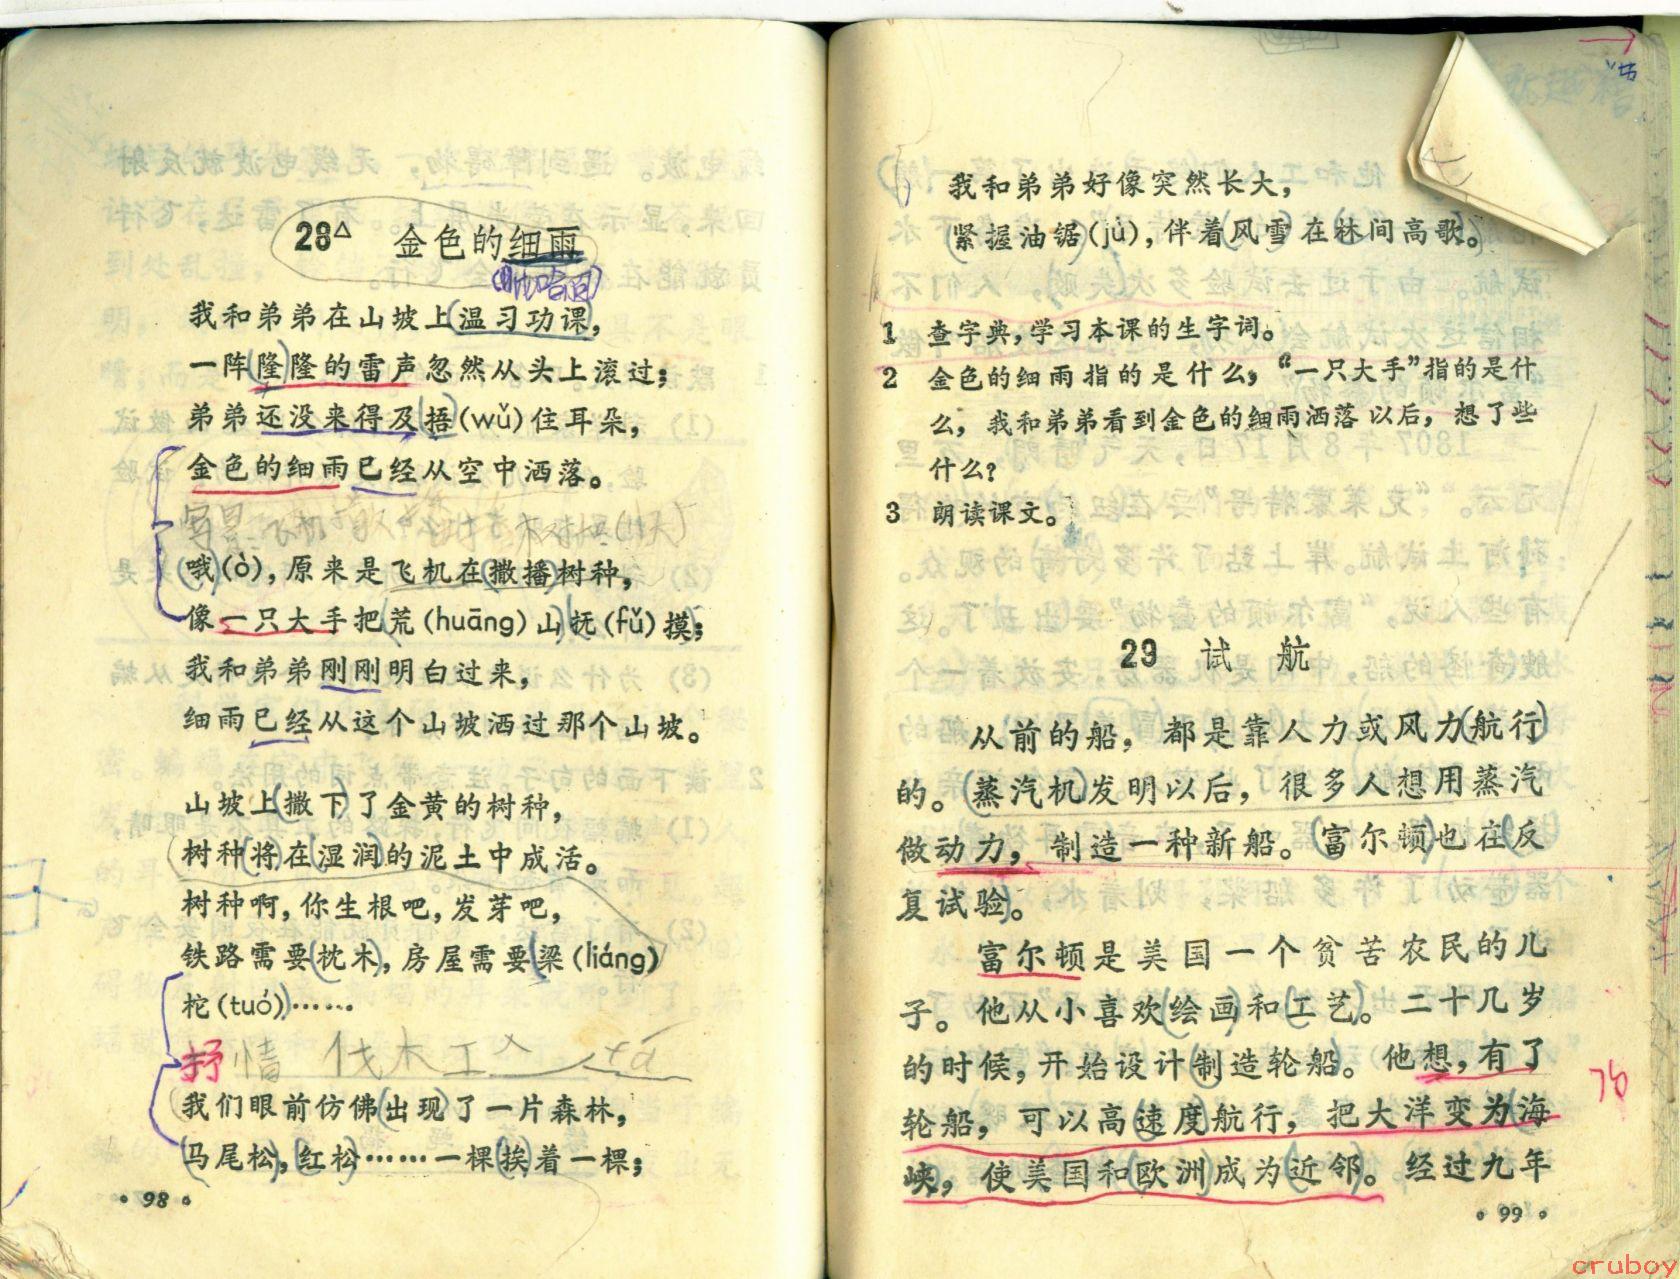 28△ 金色的细雨
我和弟弟在山坡上温习功课，
一阵隆隆的雷声忽然从头上滚过；
弟弟还没来得及捂(wǔ)住耳朵，
金色的细雨已经从空中洒落。
写景
哦(ò)，原来是飞机在撒播树种，
像一只大手把荒(huāng)山抚(fǔ)摸；
我和弟弟刚刚明白过来，
细雨已经从这个山坡洒过那个山坡。
山坡上撒下了金黄的树种，
树种将在湿润的泥土中成活。
树种啊，你生根吧，发芽吧，
铁路需要枕木，房屋需要梁(liáng)
柁(tuó)……
抒情 伐木工人
我们眼前仿佛出现了一片森林，
马尾松，红松……一棵挨着一棵；
·98·
我和弟弟好像突然长大，
紧握油锯(jù)，伴着风雪在林间高歌。
1 查字典，学习本课的生字词。
2 金色的细雨指的是什么，“一只大手”指的是什
么，我和弟弟看到金色的细雨洒落以后，想了些
什么？
3 朗读课文。
29 试航
从前的船，都是靠人力或风力航行
的。蒸汽机发明以后，很多人想用蒸汽
做动力，制造一种新船。富尔顿也在反
复试验。
富尔顿是美国一个贫苦农民的儿
子。他从小喜欢绘画和工艺。二十几岁
的时候，开始设计制造轮船。他想，有了
轮船，可以高速度航行，把大洋变为海
峡，使美国和欧洲成为近邻。经过九年
·99·
cruboy